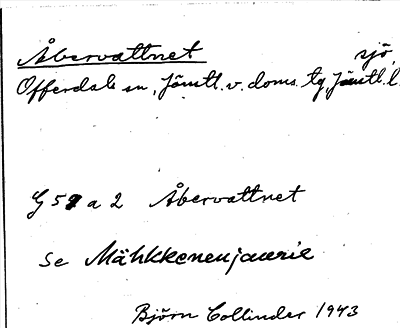 Åbervattnet sjö,
Offerdals sn, Jämtl. v. doms. tg, Jämtl. l.
G 59 a 2 Åbervattnet
se Mähkkeneujaurie
Björn Collinder 1943